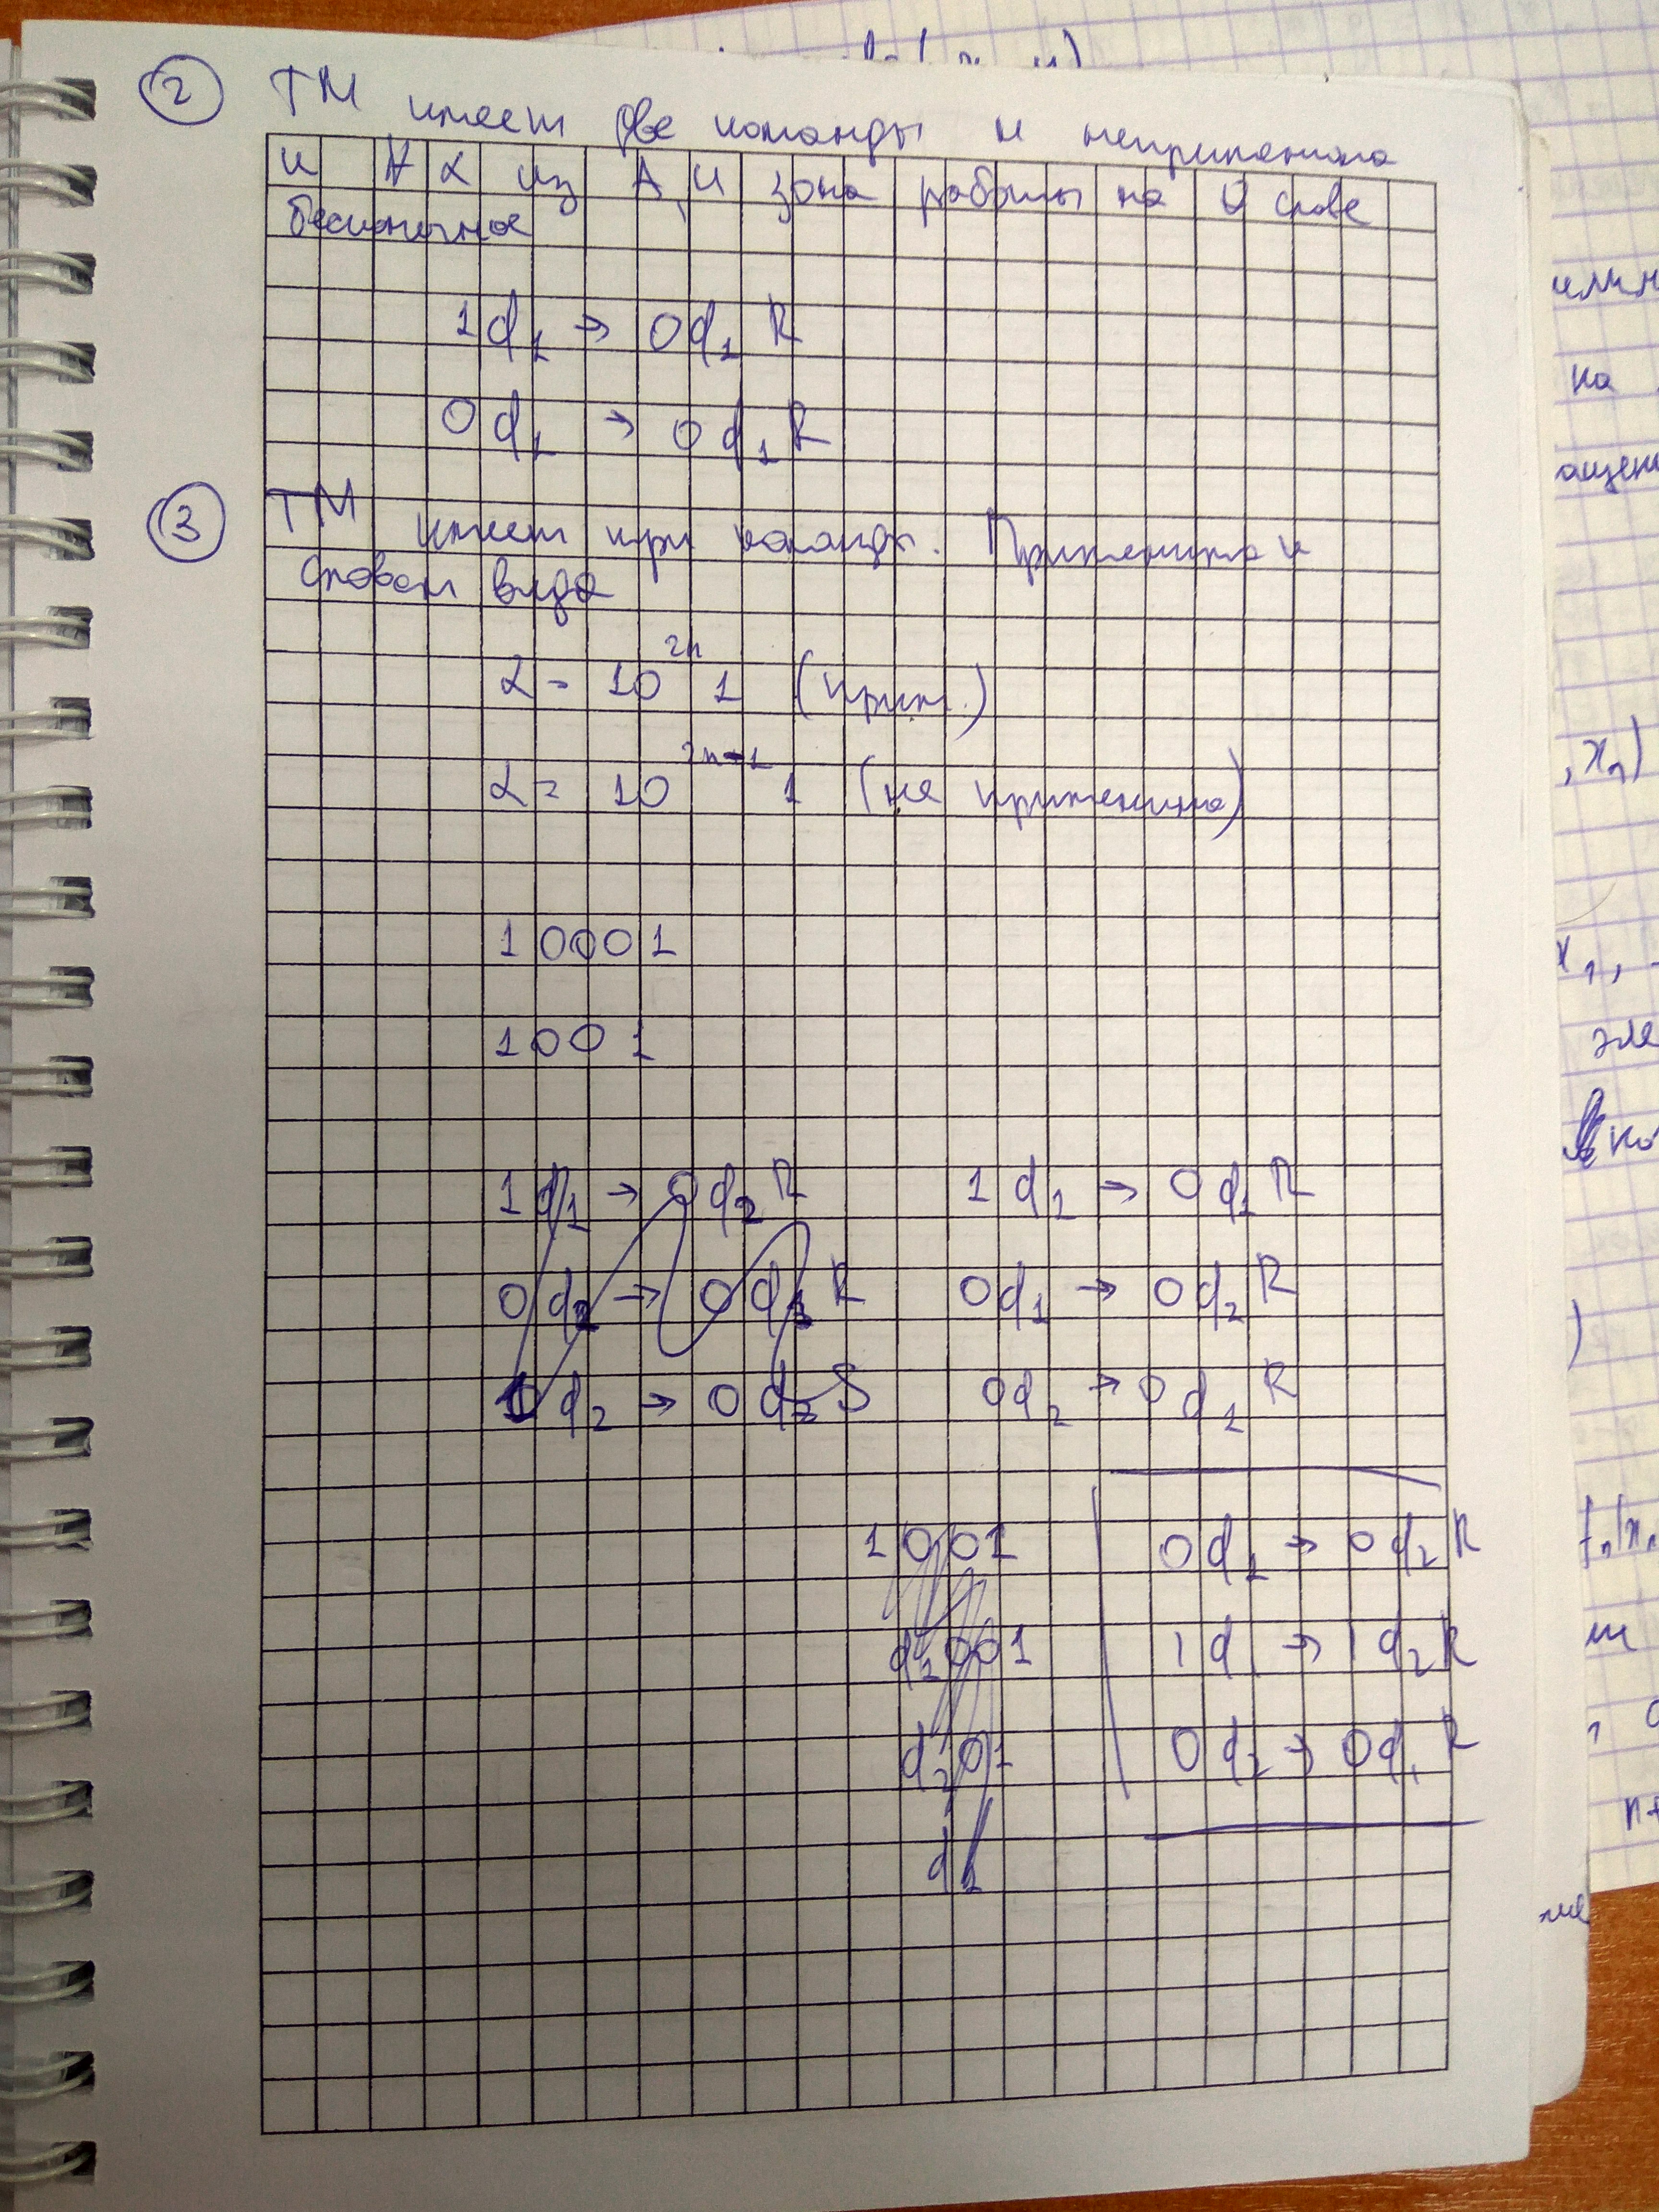 ② ТМ имеет две команды и неприменима
к ∀ α из A, и зона работы на 0 слове
бесконечное
1q₁ → 0q₁ R
0q₁ → 0q₁ R
③ ТМ имеет три команды. Применима к
словам вида
α = 10²ⁿ1 (прим.)
α = 10²ⁿ⁻¹ 1 (не применима)
10001
1001
1q₁ → 0q₂ R 1q₁ → 0q₁ R
0q₂ → 0q₁ R 0q₁ → 0q₂ R
q₂ → 0q₂ S 0q₂ → 0q₁ R
1001 0q₁ → 0q₂ R
q₁001 1q → 1q₂ R
q₂01 0q₂ → 0q₁ R
q₁
на
, xₙ)
x₁,
эле
)